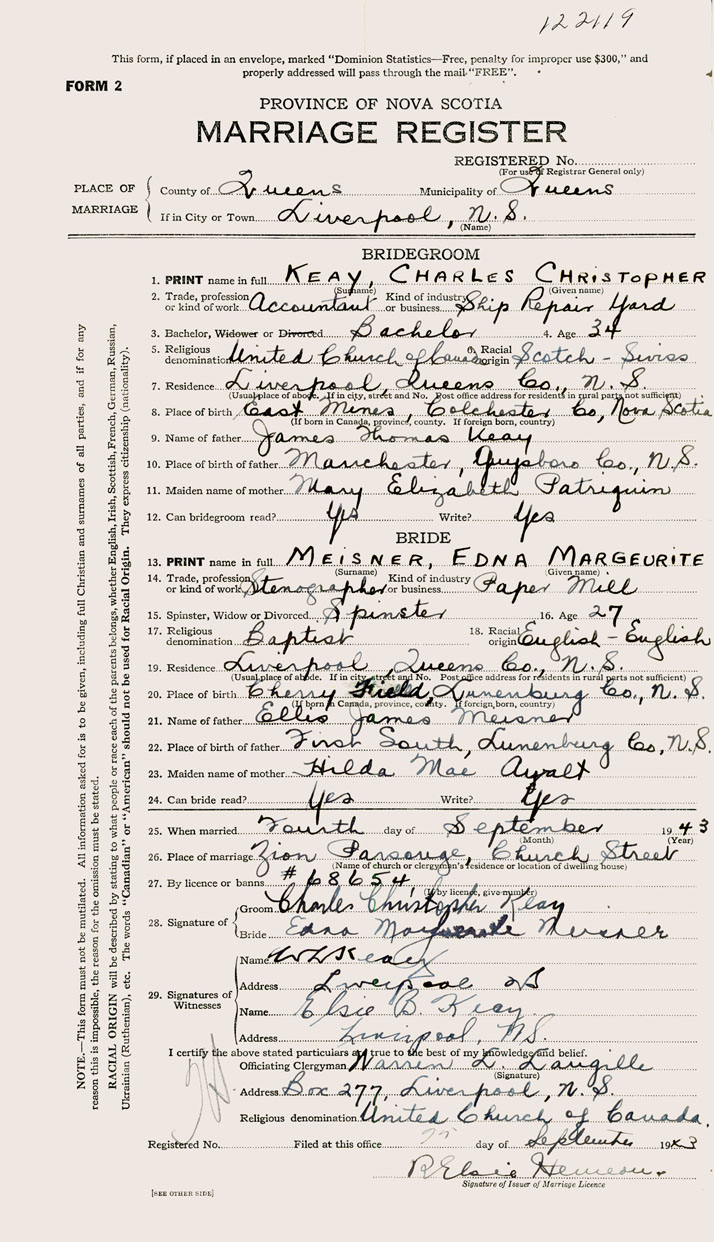 122119
This form, if placed in an envelope, marked “Dominion Statistics—Free, penalty for improper use $300,” and
properly addressed will pass through the mail “FREE”.
FORM 2
PROVINCE OF NOVA SCOTIA
MARRIAGE REGISTER
REGISTERED No.
(For use of Registrar General only)
PLACE OF MARRIAGE
County of Queens Municipality of Queens
If in City or Town Liverpool, N.S.
(Name)
BRIDEGROOM
1. PRINT name in full KEAY, CHARLES CHRISTOPHER
(Surname) (Given name)
2. Trade, profession or kind of work Accountant Kind of industry or business Ship Repair Yard
3. Bachelor, Widower or Divorced Bachelor 4. Age 34
5. Religious denomination United Church of Canada 6. Racial origin Scotch - Swiss
7. Residence Liverpool, Queens Co., N.S.
(Usual place of abode. If in city, street and No. Post office address for residents in rural parts not sufficient)
8. Place of birth East Mines, Colchester Co, Nova Scotia
(If born in Canada, province, county. If foreign born, country)
9. Name of father James Thomas Keay
10. Place of birth of father Manchester, Guysboro Co., N.S.
11. Maiden name of mother Mary Elizabeth Patriquin
12. Can bridegroom read? Yes Write? Yes
BRIDE
13. PRINT name in full MEISNER, EDNA MARGEURITE
(Surname) (Given name)
14. Trade, profession or kind of work Stenographer Kind of industry or business Paper Mill
15. Spinster, Widow or Divorced Spinster 16. Age 27
17. Religious denomination Baptist 18. Racial origin English - English
19. Residence Liverpool, Queens Co., N.S.
(Usual place of abode. If in city, street and No. Post office address for residents in rural parts not sufficient)
20. Place of birth Cherry Field, Lunenburg Co., N.S.
(If born in Canada, province, county. If foreign born, country)
21. Name of father Ellis James Meisner
22. Place of birth of father First South, Lunenburg Co, N.S.
23. Maiden name of mother Hilda Mae
24. Can bride read? Yes Write? Yes
25. When married Fourth day of September 1943
(Month) (Year)
26. Place of marriage Zion Parsonge, Church Street
(Name of church or clergyman's residence or location of dwelling house)
27. By licence or banns # 68654,
(If by licence, give number)
28. Signature of
Groom Charles Christopher Keay
Bride Edna Meisner
29. Signatures of Witnesses
Name Keay
Address Liverpool NS
Name Elsie B. Keay
Address Liverpool, NS.
I certify the above stated particulars are true to the best of my knowledge and belief.
Officiating Clergyman Warren L. Langille
(Signature)
Address Box 277, Liverpool, N.S.
Religious denomination United Church of Canada.
Registered No. Filed at this office day of September 1943
R Elsie
Signature of Issuer of Marriage Licence
[SEE OTHER SIDE]
NOTE.—This form must not be mutilated. All information asked for is to be given, including full Christian and surnames of all parties, and if for any
reason this is impossible, the reason for the omission must be stated.
RACIAL ORIGIN will be described by stating to what people or race each of the parents belongs, whether English, Irish, Scottish, French, German, Russian,
Ukrainian (Ruthenian), etc. The words “Canadian” or “American” should not be used for Racial Origin. They express citizenship (nationality).